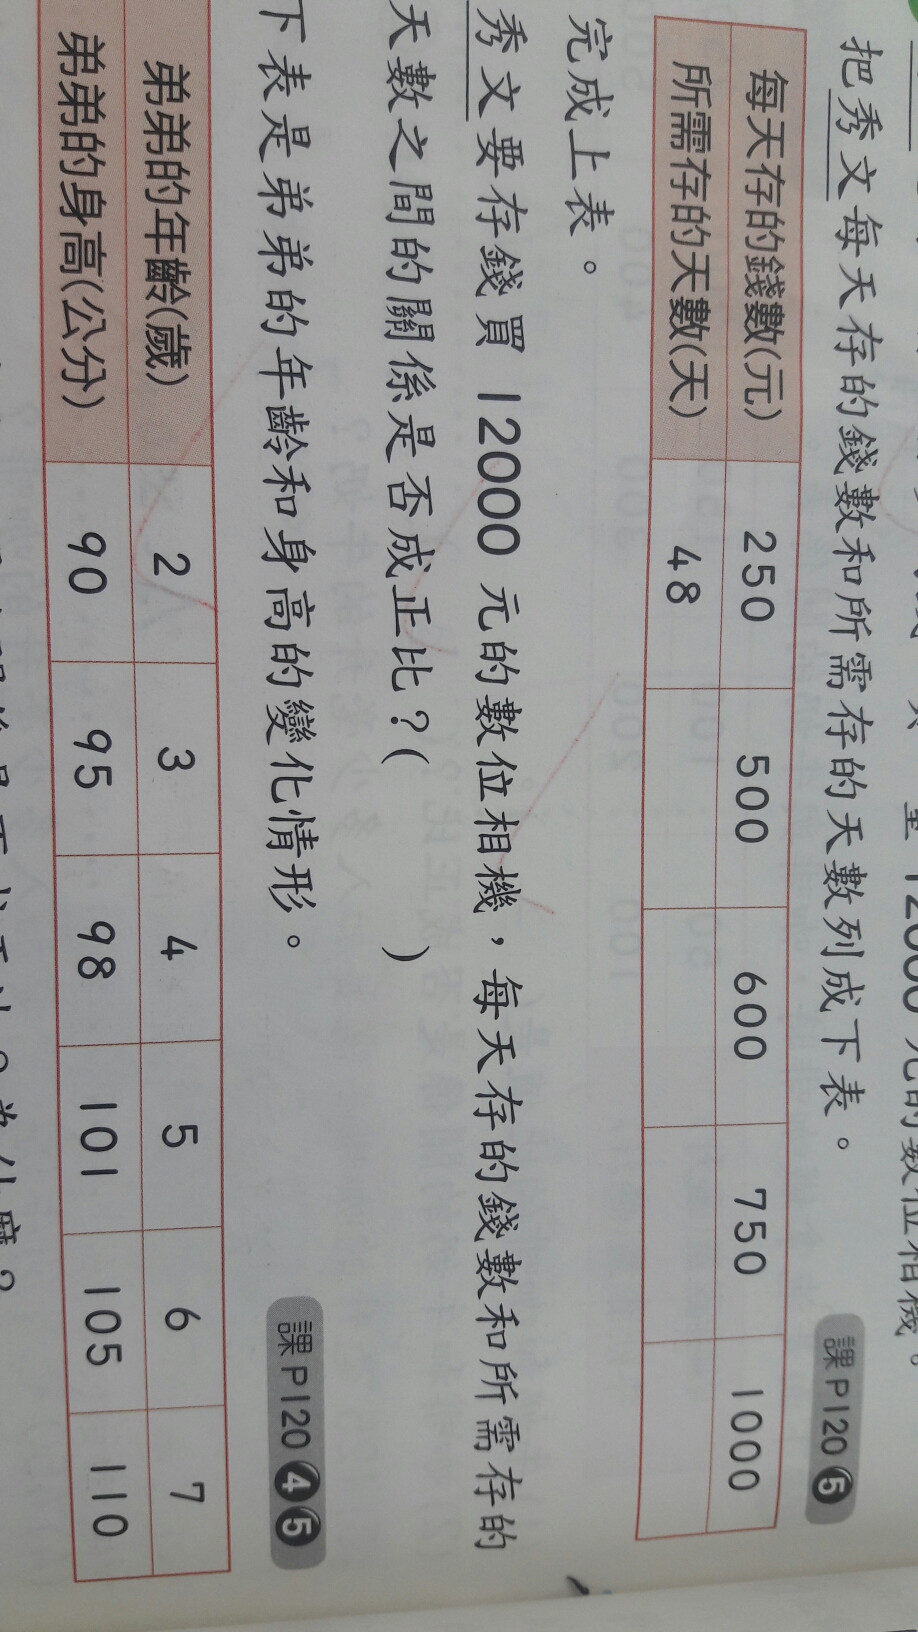 12000元的數位相機。
把秀文每天存的錢數和所需存的天數列成下表。
課P120 5
每天存的錢數(元) 250 500 600 750 1000
所需存的天數(天) 48
完成上表。
秀文要存錢買12000元的數位相機，每天存的錢數和所需存的
天數之間的關係是否成正比？( )
下表是弟弟的年齡和身高的變化情形。
課P120 4 5
弟弟的年齡(歲) 2 3 4 5 6 7
弟弟的身高(公分) 90 95 98 101 105 110